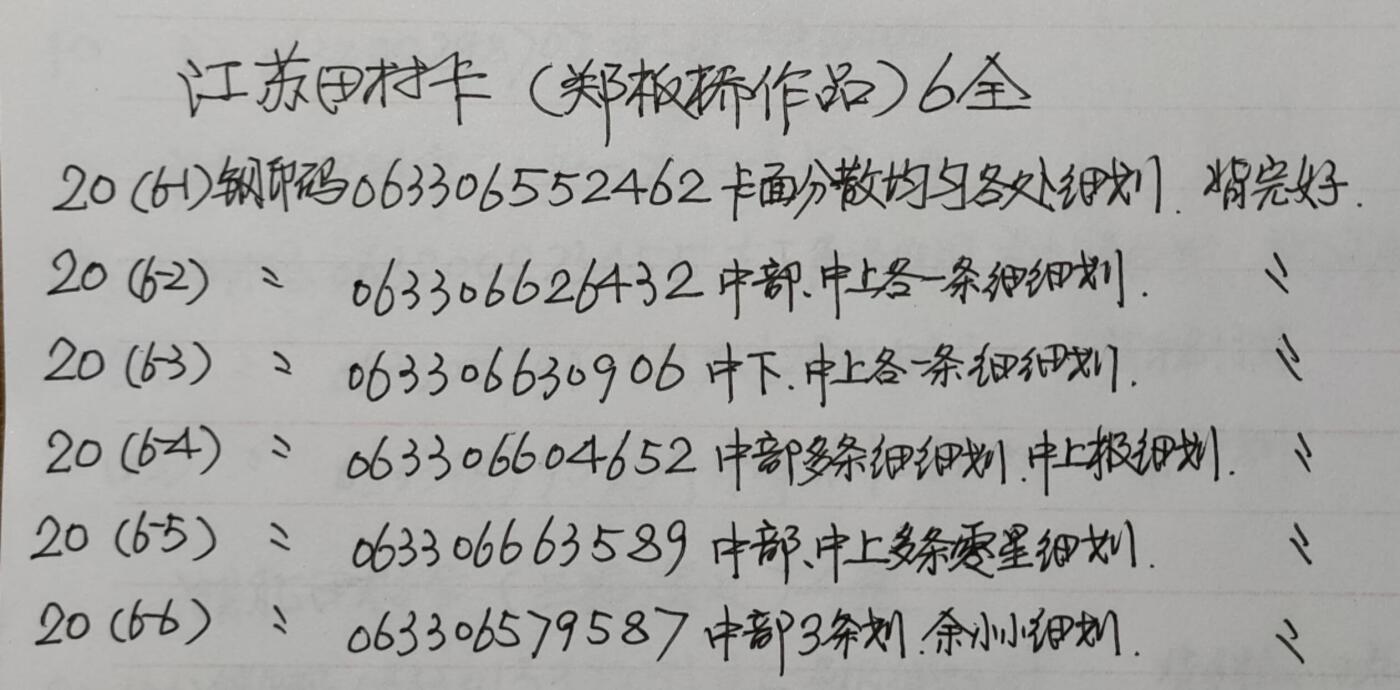 江苏田村卡（郑板桥作品）6全
20(6-1)钢印码063306552462卡面分散均匀各处细划.背完好.
20(6-2) 〃 063306626432中部、中上各一条细细划. 〃
20(6-3) 〃 063306630906中下.中上各一条细细划. 〃
20(6-4) 〃 063306604652中部多条细细划.中上极细划. 〃
20(6-5) 〃 063306663589中部、中上多条零星细划. 〃
20(6-6) 〃 063306579587中部3条划.余小小细划. 〃